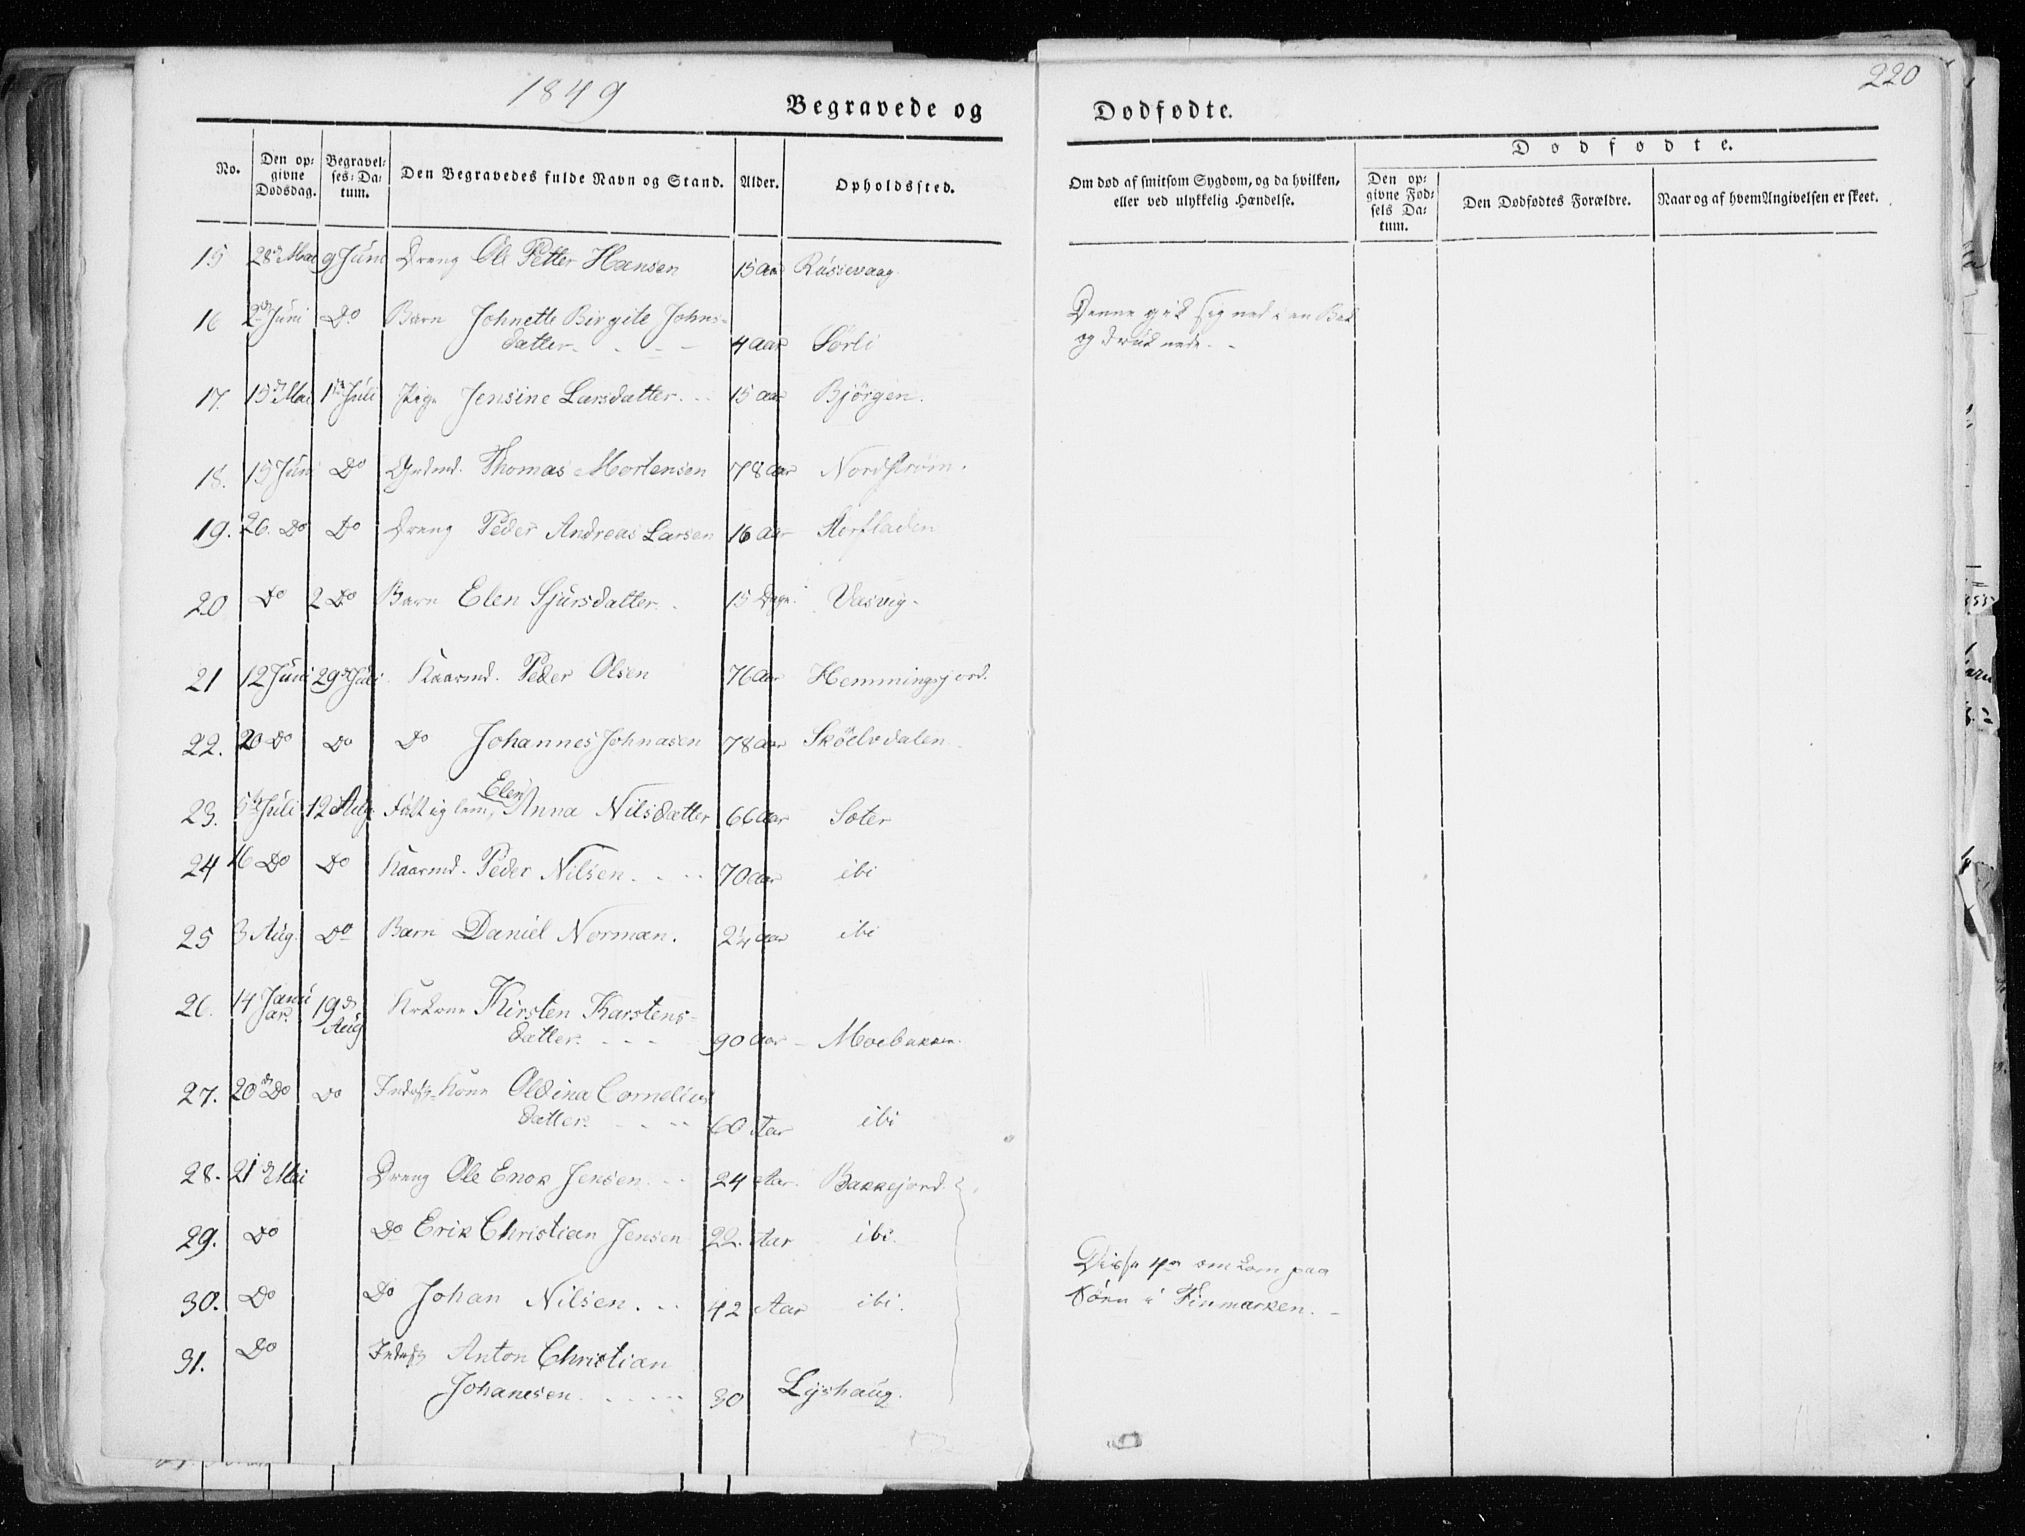 1849
220
Begravede og
Dødfødte.
Dødfødte.
No.
Den op-
givne
Dødsdag.
Begravel-
ses-Da-
tum.
Den Begravedes fulde Navn og Stand.
Alder.
Opholdssted.
Om død af smitsom Sygdom, og da hvilken,
eller ved ulykkelig Hændelse.
Den op-
givne Fød-
sels Da-
tum.
Den Dødfødtes Forældre.
Naar og af hvem Angivelsen er skeet.
15 28 Mai 9 Juni Dreng Ole Petter Hansen 15 Aar Russevaag.
16 2 Juni Do Barn Johnette Birgite Johns-
datter. 4 Aar Sørli
Denne gik sig ned i en Bæk
og druknede. -
17. 15 Mai 1 Juli Pige Jensine Larsdatter. 15 Aar Bjørgen.
18. 15 Juni Do Thomas Mortensen 78 Aar Nordstrøm.
19. 26. Do Do Dreng Peder Andreas Larsen 16 Aar
20 Do 2 Do Barn Elen Sjursdatter. 15 Dage. Vasvig.
21 12 Juni 29 Juli Kaarmd. Peder Olsen 76 Aar Hemmingsjord.
22. 20 Do Do Do Johannes Johnasen 78 Aar Skøelvdalen.
Elen
23. 5 Juli 12 Aug. Fattiglem, Anna Nilsdatter 66 Aar Soter
24 16 Do Do Kaarmd. Peder Nilsen. 70 Aar ibi
25 3 Aug. Do Barn Daniel Norman. 24 Aar ibi
26. 14 Janu 19
ar. Aug Kirsten Karstens-
datter. 90 Aar - Moebakken.
27. 20 Do Do Inderst Kone Oldina Cornelius
datter. 60 Aar ibi
28. 21 Mai Dreng Ole Enok Jensen. 24 Aar. Bakkejord.
29. Do Do Erik Christian Jensen 22. Aar ibi.
30. Do Do Johan Nilsen. 42 Aar ibi.
Disse 4re omkom paa
Søen i Finmarken. -
31. Do Inderst Anton Christian
Johanesen. 30 Lyshaug.